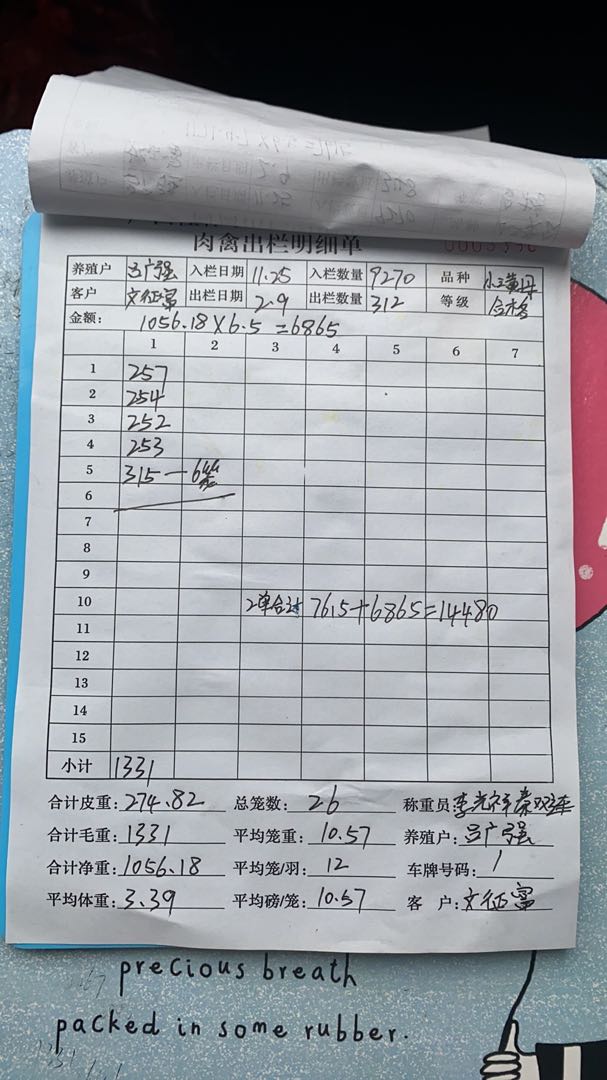 肉禽出栏明细单
养殖户 吕广强 入栏日期 11.25 入栏数量 9270 品种
客户 文征富 出栏日期 2.9 出栏数量 312 等级 合格
金额: 1056.18×6.5=6865
1 2 3 4 5 6 7
1 257
2 254
3 252
4 253
5 315—6笼
6
7
8
9
10 2单合计 7615+6865=14480
11
12
13
14
15
小计 1331
合计皮重: 274.82 总笼数: 26 称重员:
合计毛重: 1331 平均笼重: 10.57 养殖户: 吕广强
合计净重: 1056.18 平均笼/羽: 12 车牌号码: 1
平均体重: 3.39 平均磅/笼: 10.57 客 户: 文征富
precious breath
packed in some rubber.